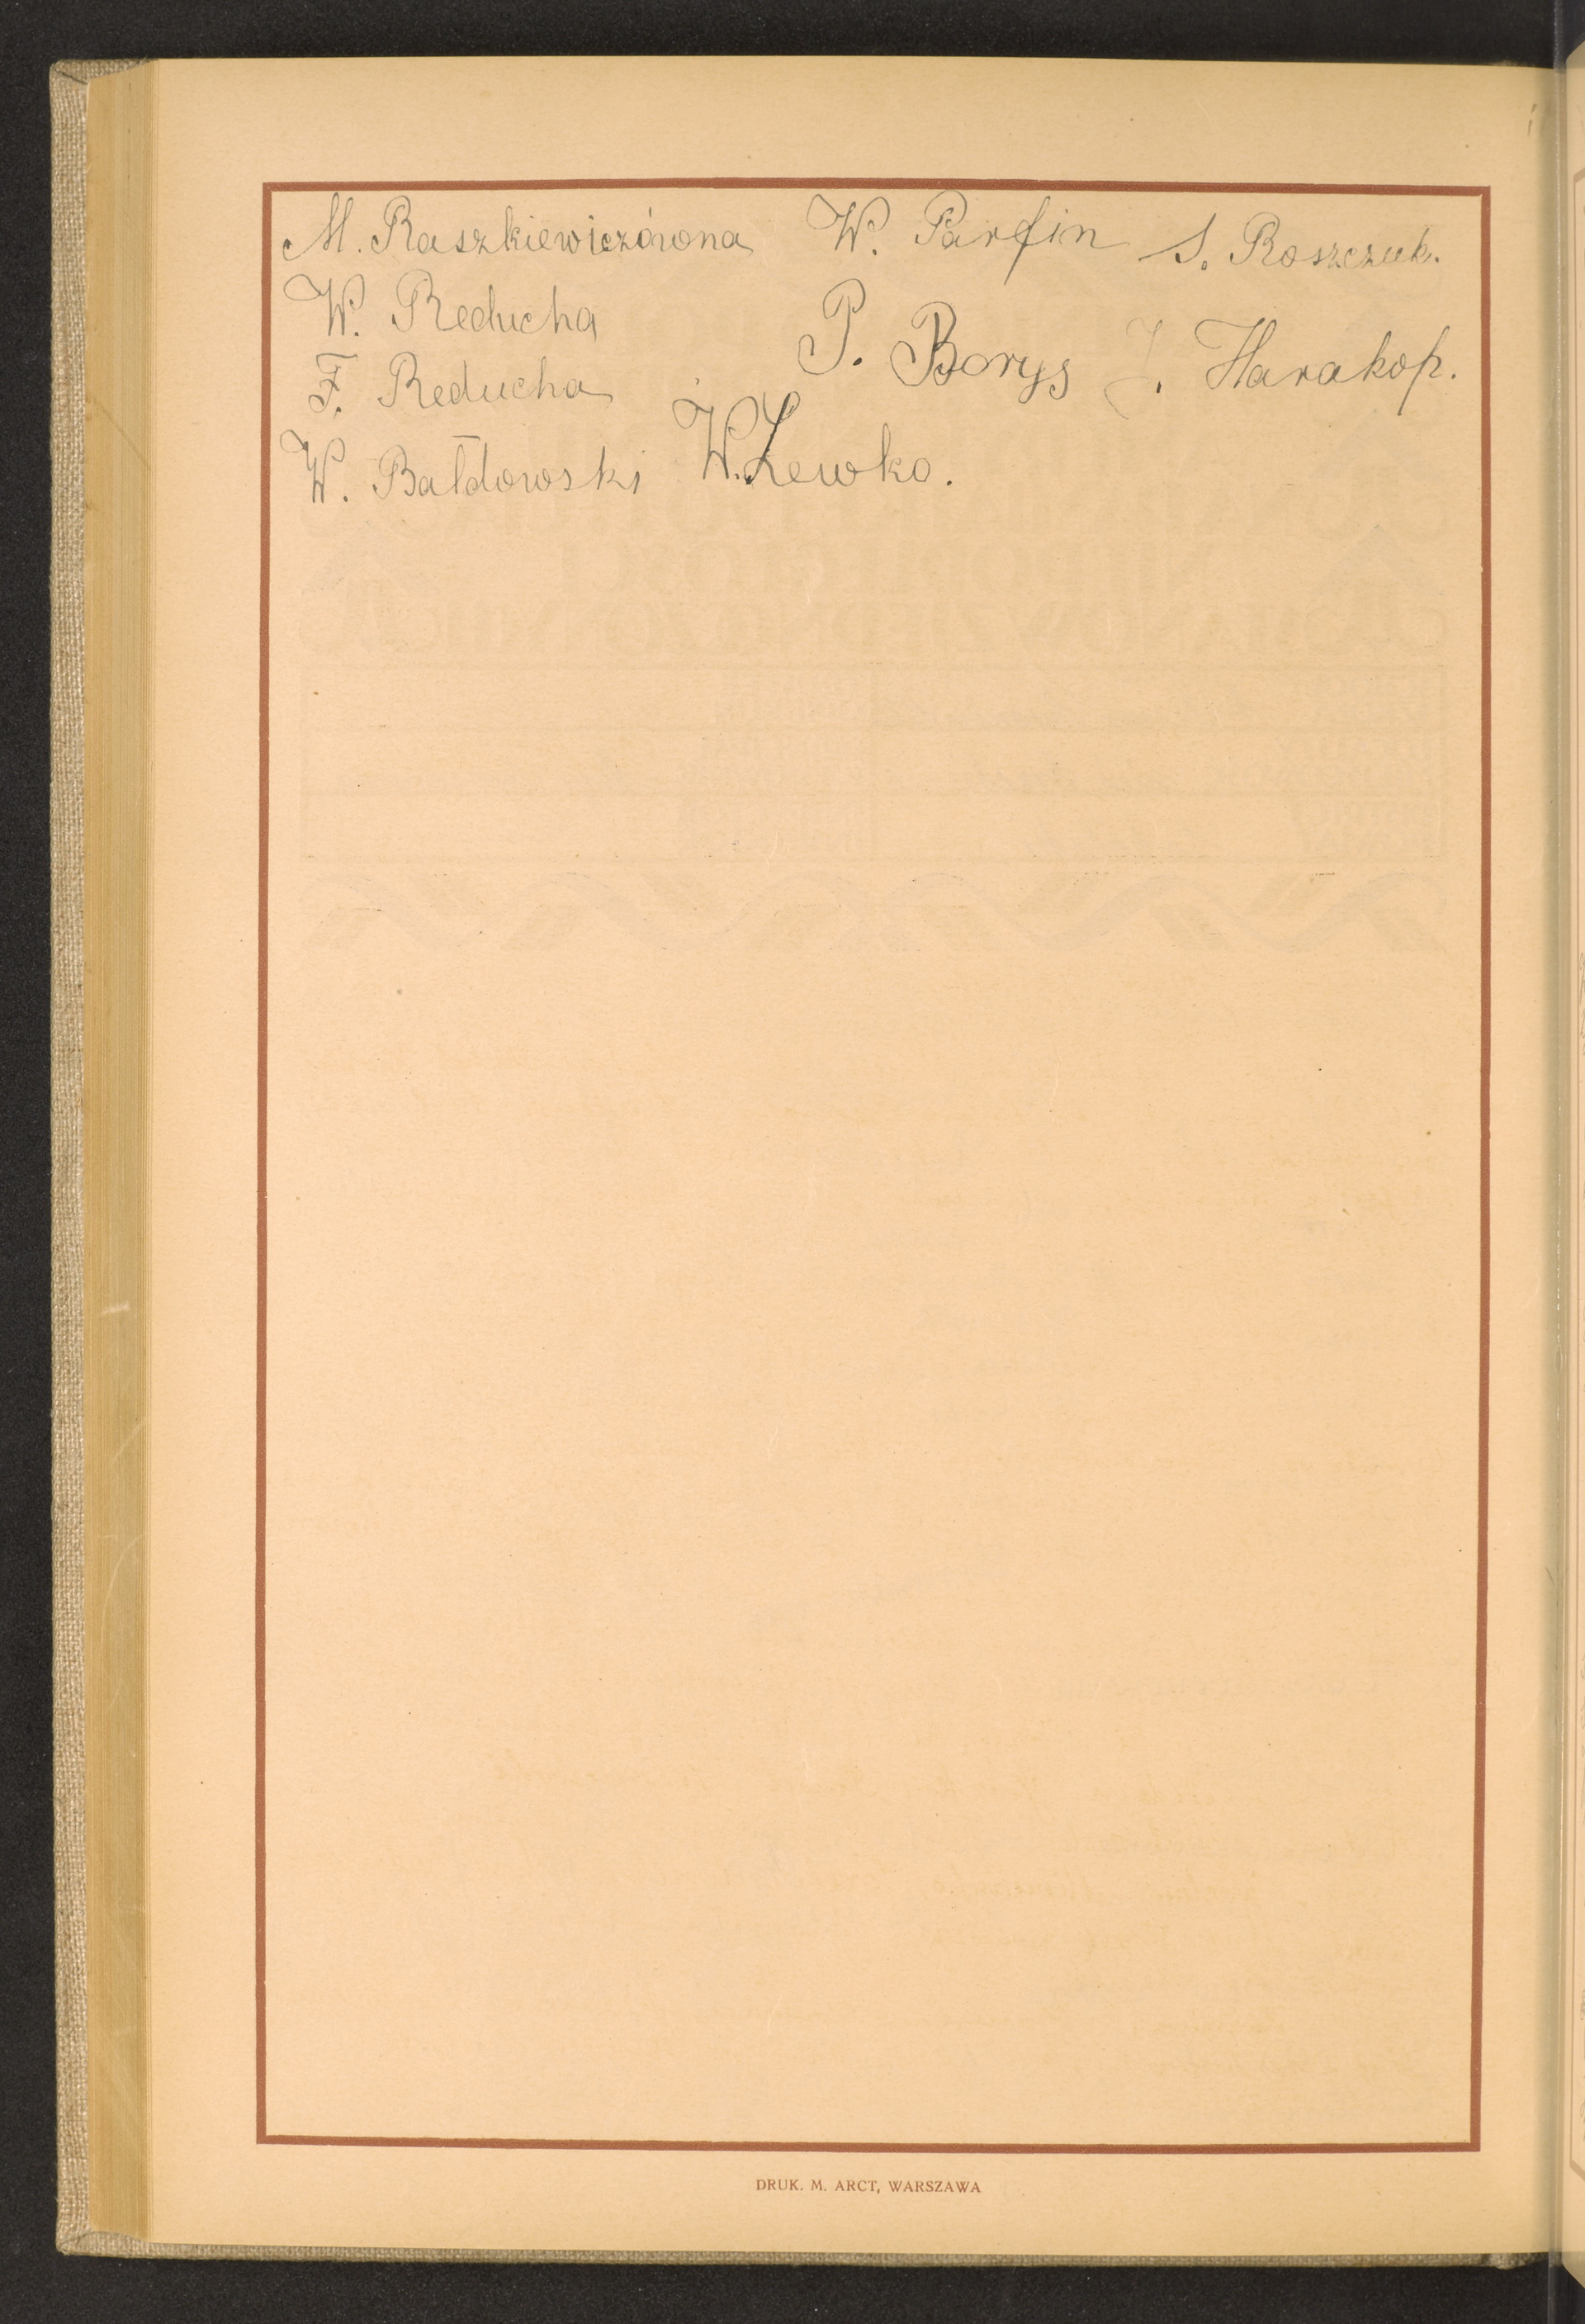 M. Raszkiewiczówna W. Parfin S. Roszczuk.
W. Reducha
P. Borys J. Harakop.
F. Reducha
W. Bałdowski W. Lewko.
DRUK. M. ARCT, WARSZAWA